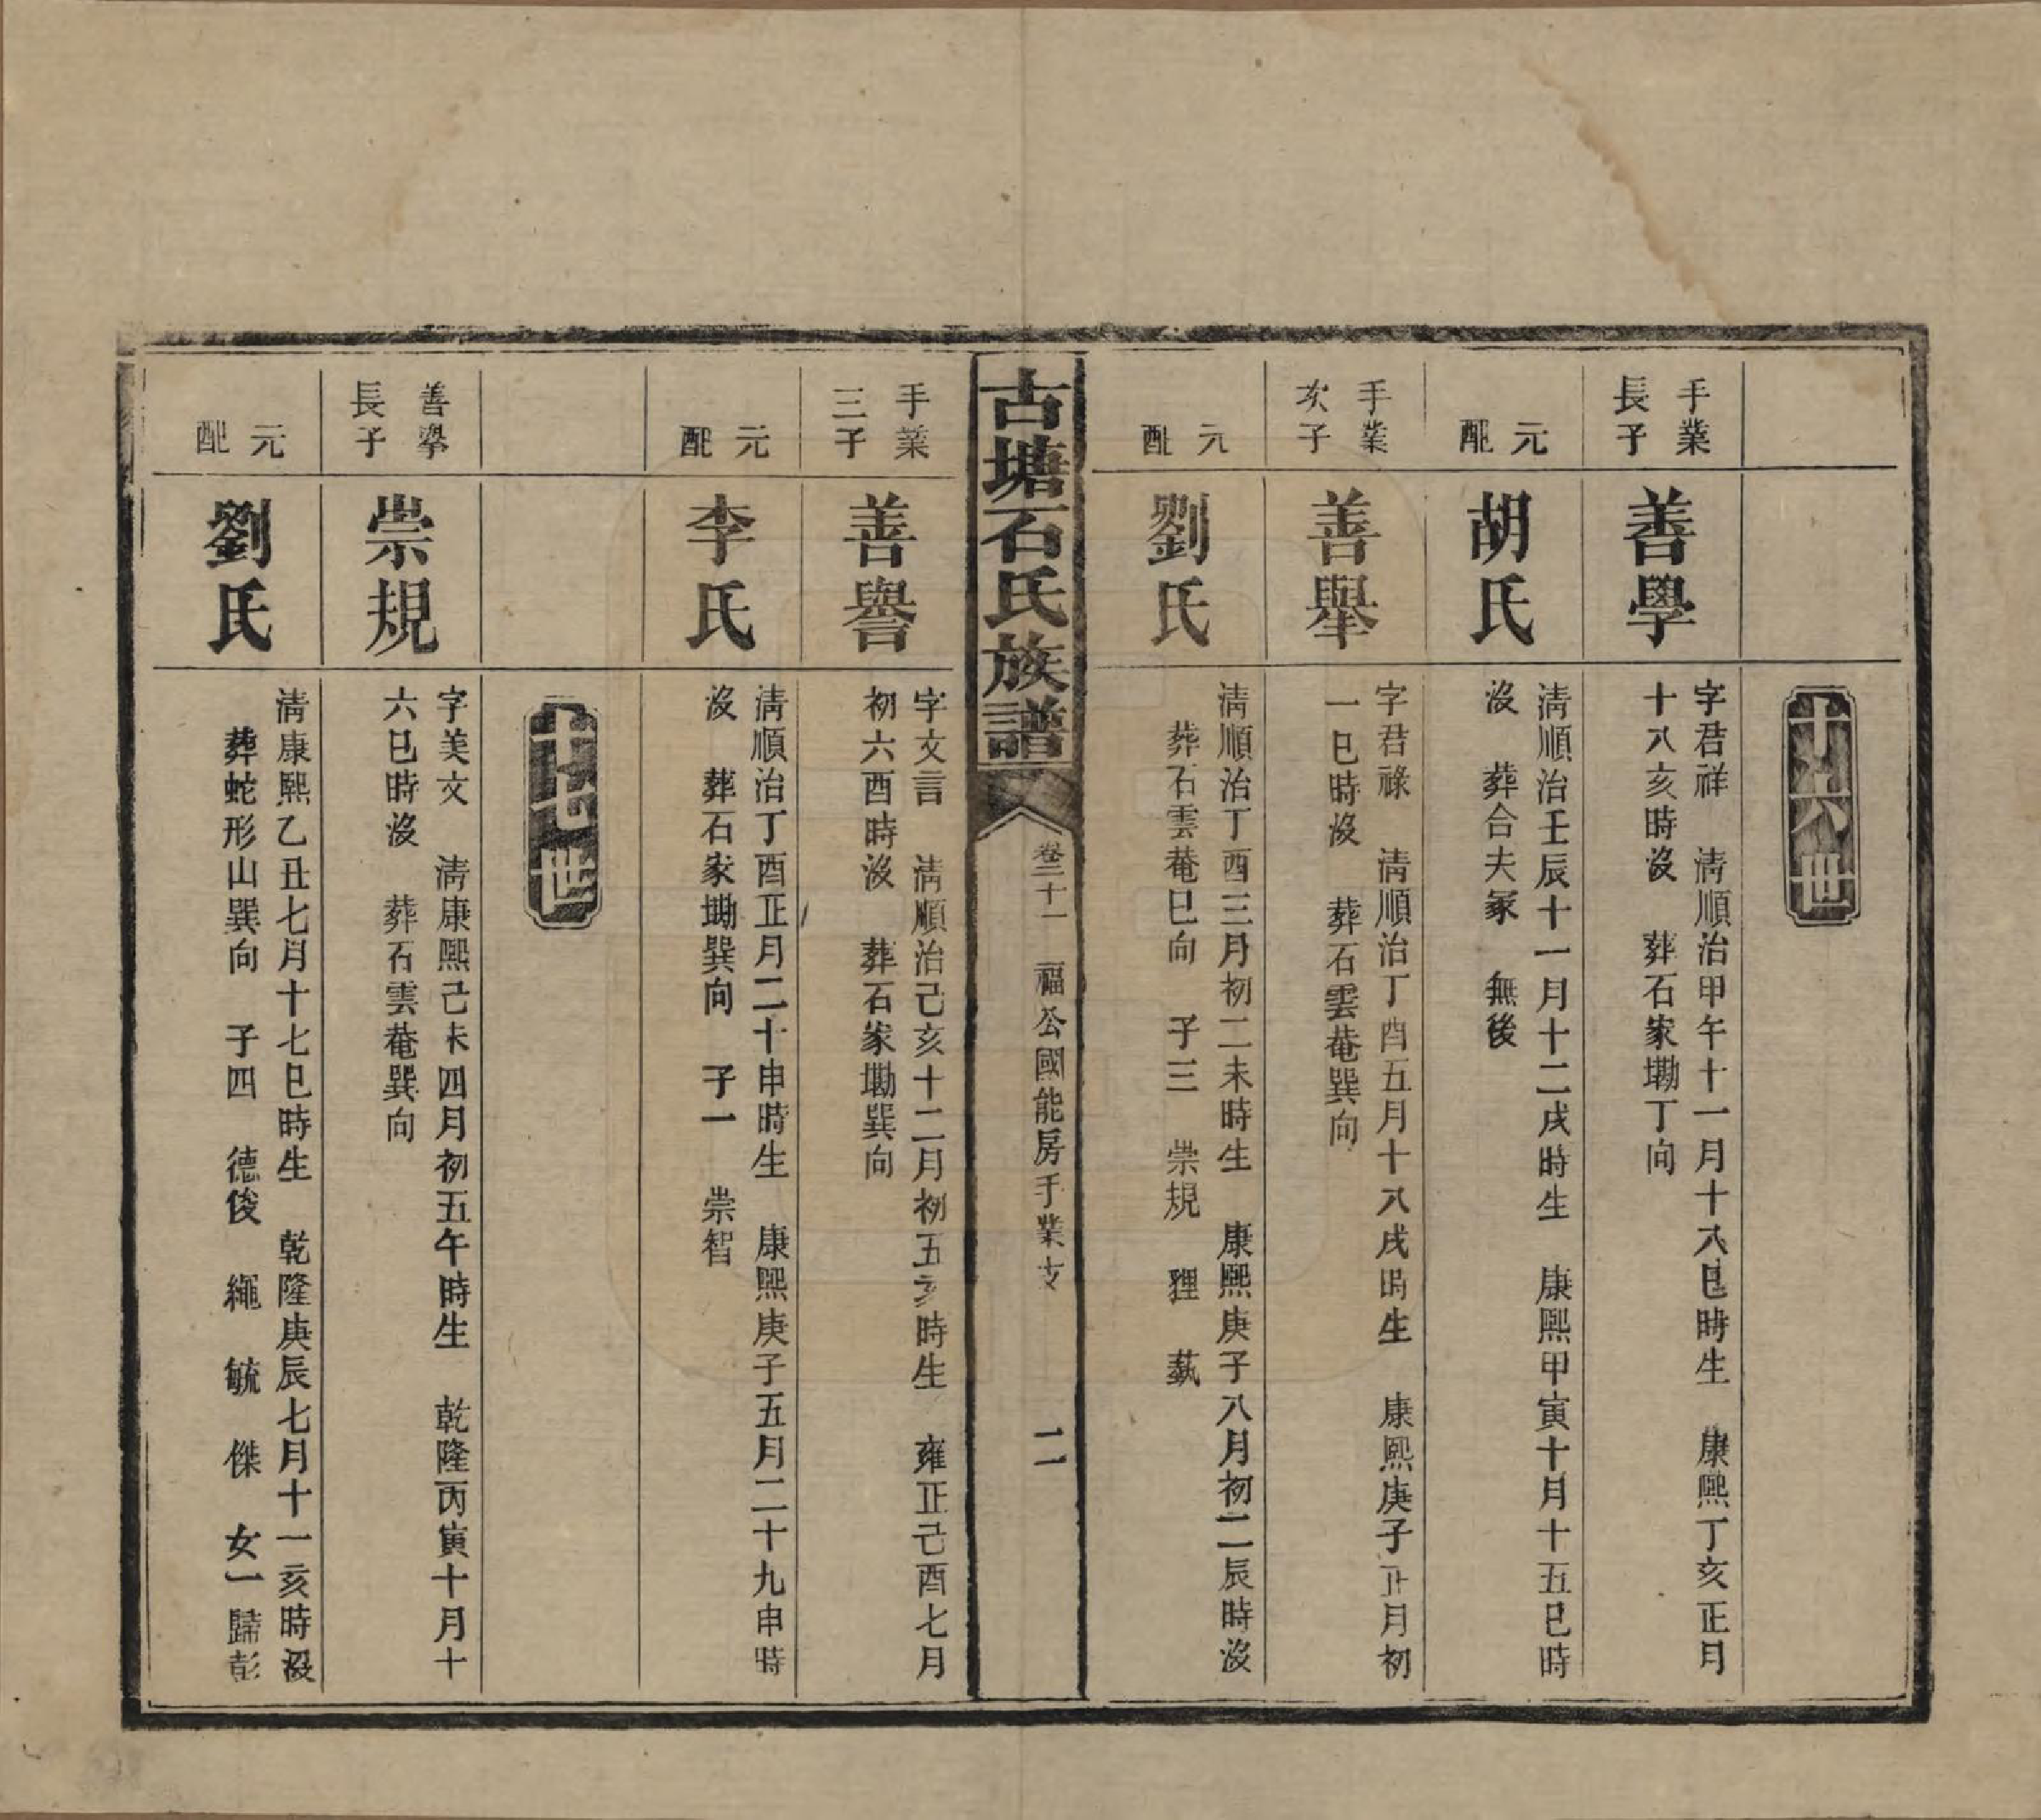 十六世
手業
長子
善學
字君祥　清順治甲午十一月十八巳時生　康熙丁亥正月
十八亥時沒　葬石家塅丁向
元配
胡氏
清順治壬辰十一月十二戌時生　康熙甲寅十月十五巳時
沒　葬合夫冢　無後
手業
次子
善舉
字君祿　清順治丁酉五月十八戌時生　康熙庚子正月初
一巳時沒　葬石雲菴巽向
元配
劉氏
清順治丁酉三月初二未時生　康熙庚子八月初二辰時沒
葬石雲菴巳向　子三　崇規　狸　蓺
古塘石氏族譜
卷三十一　福公國能房手業支
二
手業
三子
善譽
字文言　清順治己亥十二月初五亥時生　雍正己酉七月
初六酉時沒　葬石家塅巽向
元配
李氏
清順治丁酉正月二十申時生　康熙庚子五月二十九申時
沒　葬石家塅巽向　子一　崇智
十七世
善舉
長子
崇規
字美文　清康熙己未四月初五午時生　乾隆丙寅十月十
六巳時沒　葬石雲菴巽向
元配
劉氏
清康熙乙丑七月十七巳時生　乾隆庚辰七月十一亥時沒
葬蛇形山巽向　子四　德俊　繩　毓　傑　女一歸彭